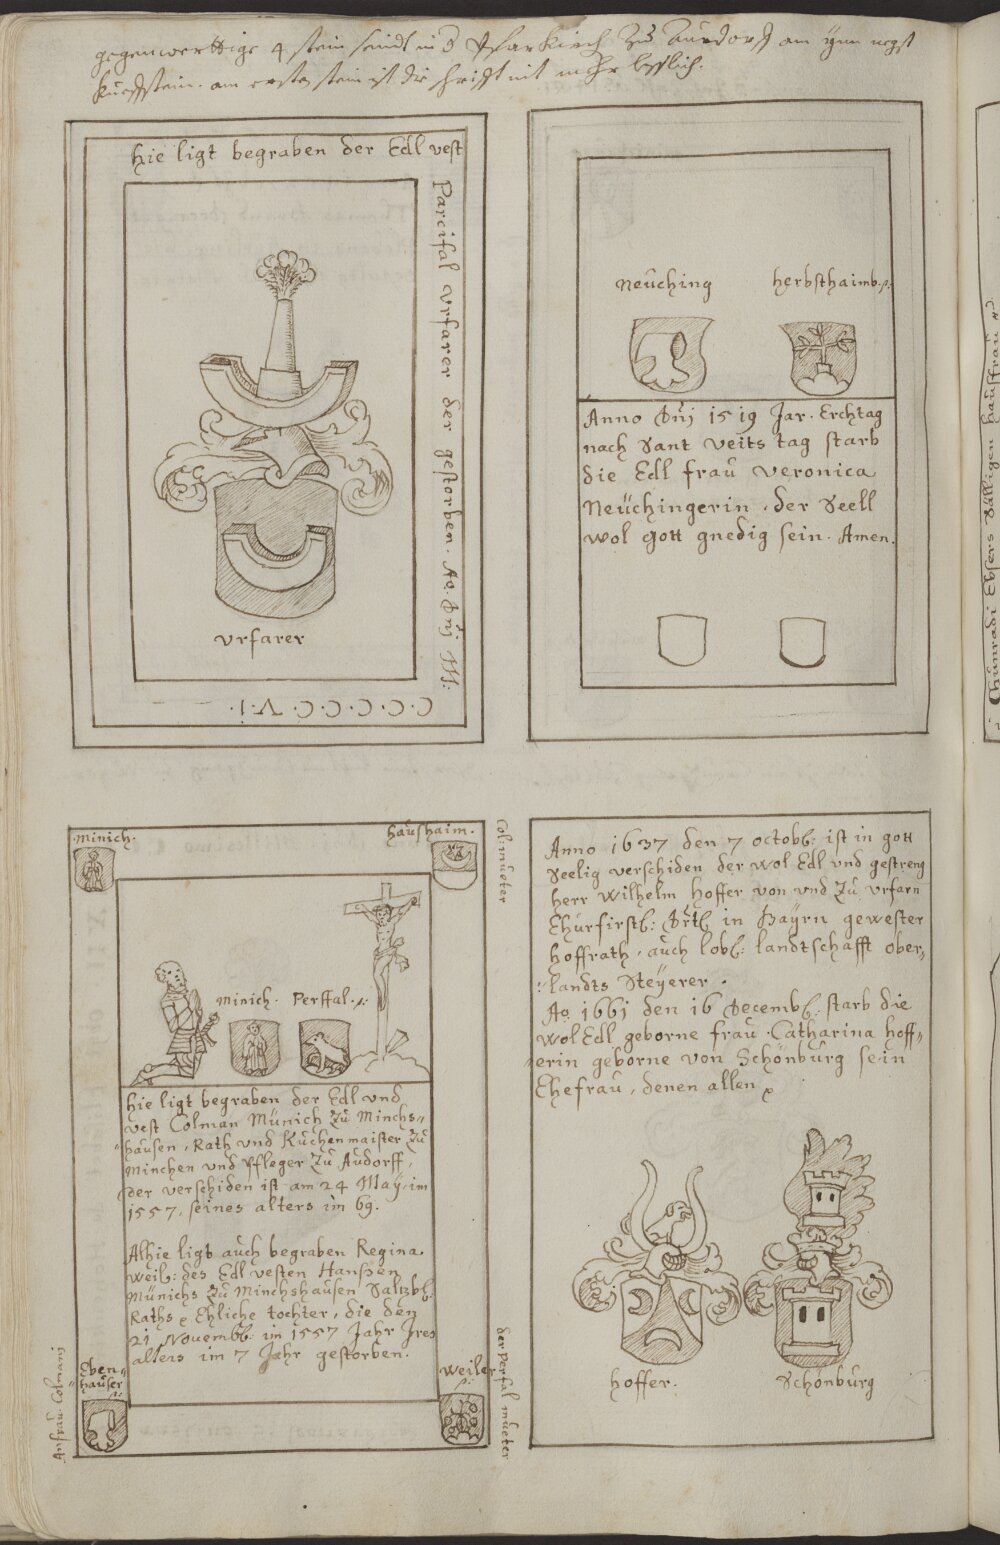 gegenwerttige 4 stein seindt in d Pfarkirch Zu Audorf am ynn negst
kueffstein. am ersten stein ist die schrifft nit mehr leslich.
Hie ligt begraben der Edl vest
Parcifal Vrfarer der gestorben. Ao. Dnj M:
C·C·C·C·C·V·i·
Vrfarer
Neuching
herbsthaimb
Anno Dnj 1519 Jar. Erchtag
nach Sant Veits tag starb
die Edl frau Veronica
Neuchingerin. der Seell
wol gott gnedig sein. Amen.
Minich.
Haushaim.
Col: mueter
Minich. Perffal.
Hie ligt begraben der Edl vnd
vest Colman Münich Zu Minchs„
„hausen, Rath vnd Kuchenmaister Zu
Minchen vnd Pfleger Zu Audorff,
der verschiden ist am 24 May. im
1557, seines alters im 69.
Alhie ligt auch begraben Regina
weil: des Edl vesten Hansen
Münichs Zu Minchshausen Saltzb:
Raths Ehliche tochter, die den
21 Novemb: im 1557 Jahr Ires
alters im 7 Jahr gestorben.
Eben„
„hauser
Anfrau Colmanj
Weiler
der Perfal mueter
Anno 1637 den 7 octobb: ist in gott
Seelig verschiden der Wol Edl vnd gestreng
Herr Wilhelm Hoffer von vnd Zu Vrfarn
Churfirstl: Drtl in Bayrn gewester
Hoffrath, auch lobl: landtschafft ober„
„landts Steyerer.
Ao 1661 den 16 Decemb: starb die
Wol Edl geborne frau Catharina Hoff„
„erin geborne von Schönburg sein
Ehefrau, denen allen
Hoffer.
Schönburg
Chunradi Ebsers Sälligen hausfrau